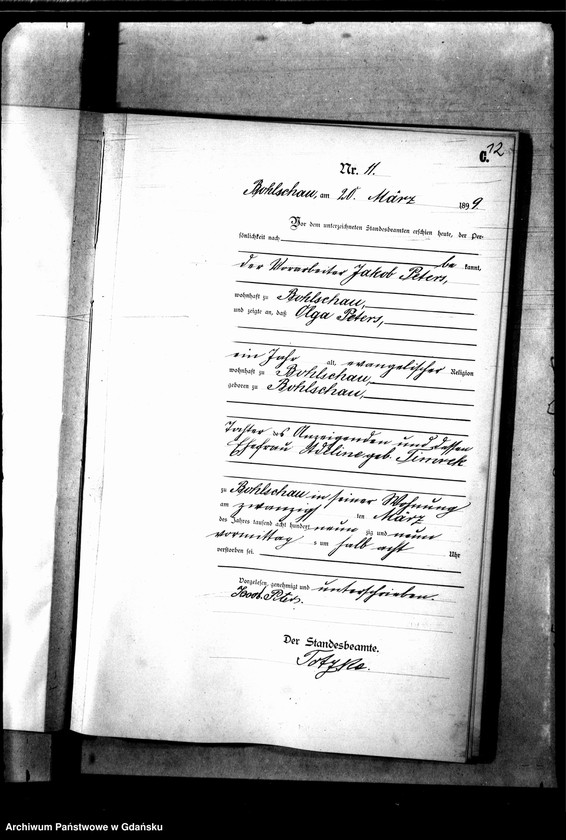 C. 12
Nr. 11.
Bohlschau, am 20. März 1899
Vor dem unterzeichneten Standesbeamten erschien heute, der Per-
sönlichkeit nach
be kannt,
der Vorarbeiter Jakob Peters,
wohnhaft zu Bohlschau,
und zeigte an, daß Olga Peters,
ein Jahr alt, evangelischer Religion
wohnhaft zu Bohlschau,
geboren zu Bohlschau,
Tochter des Anzeigenden und dessen
Ehefrau geb.
zu Bohlschau in seiner Wohnung
am zwanzigsten März
des Jahres tausend acht hundert neun zig und neun
vormittag s um halb acht Uhr
verstorben sei.
Vorgelesen, genehmigt und unterschrieben
Peters.
Der Standesbeamte.
Archiwum Państwowe w Gdańsku